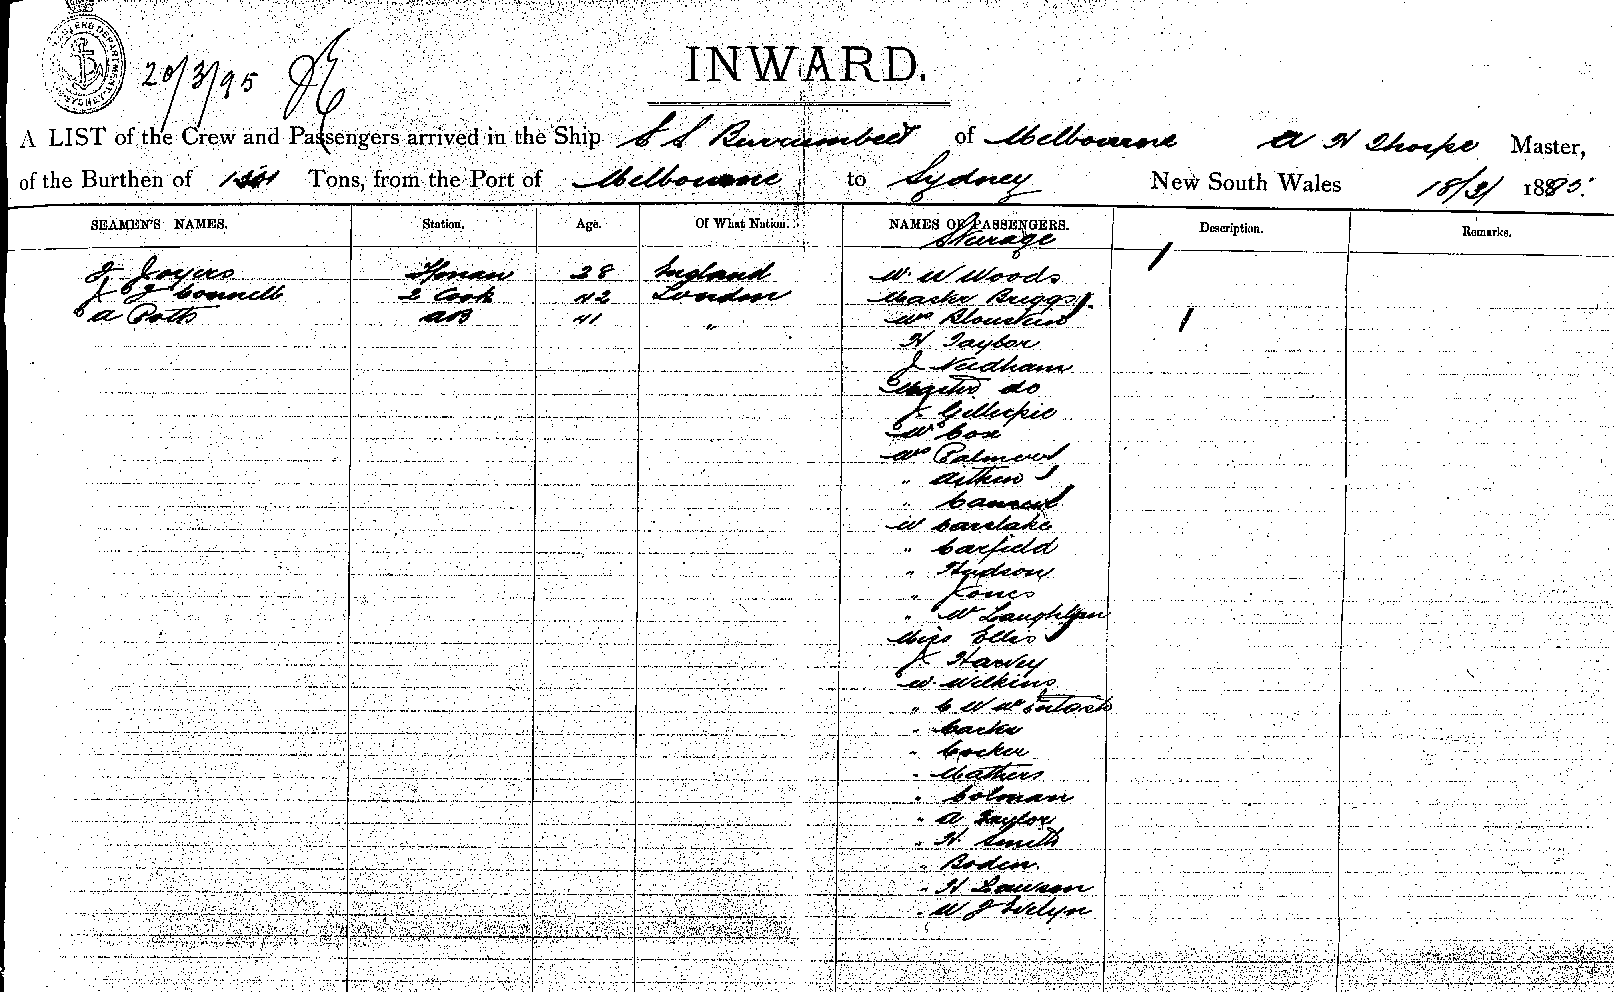 20/3/95
INWARD.
A LIST of the Crew and Passengers arrived in the Ship S S Burrumbeet of Melbourne A W Thorpe Master,
of the Burthen of Tons, from the Port of Melbourne to Sydney New South Wales 18/3/ 1895.
SEAMEN'S NAMES. Station. Age. Of What Nation. NAMES OF PASSENGERS. Description. Remarks.
Steerage
J Joyers Fman 28 England W. W Woods
J J Connell 2 Cook 42 London Master Briggs
A Potts AB 41 " Mrs
H Taylor
J Needham
do
J. Gillespie
Mr Cox
Mrs Palmer
" Aitken
"
Mr Carslake
" Carfield
" Hudson
" Jones
" McLaughlan
Miss Ellis
J Harvey
W. Wilkins
" C W McIntosh
" Carter
" Cocker
" Mathers
" Colman
" A Taylor
" H. Smith
" Boden.
" H Lawson
" W J Evelyn